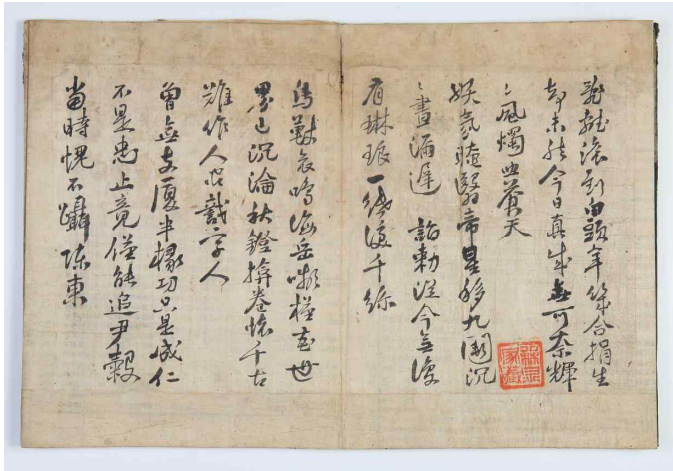 亂離滾到白頭年幾合捐生
却未然今日真成無可奈輝
〻風燭照蒼天
妖氛晻翳帝星移九闕沉
〻晝漏遲 詔勅從今無復
有琳琅一紙淚千絲
鳥獸哀鳴海岳嚬槿花世
界已沉淪秋鐙掩卷懷千古
難作人間識字人
曾無支廈半椽功只是成仁
不是忠止竟僅能追尹穀
當時愧不躡陳東